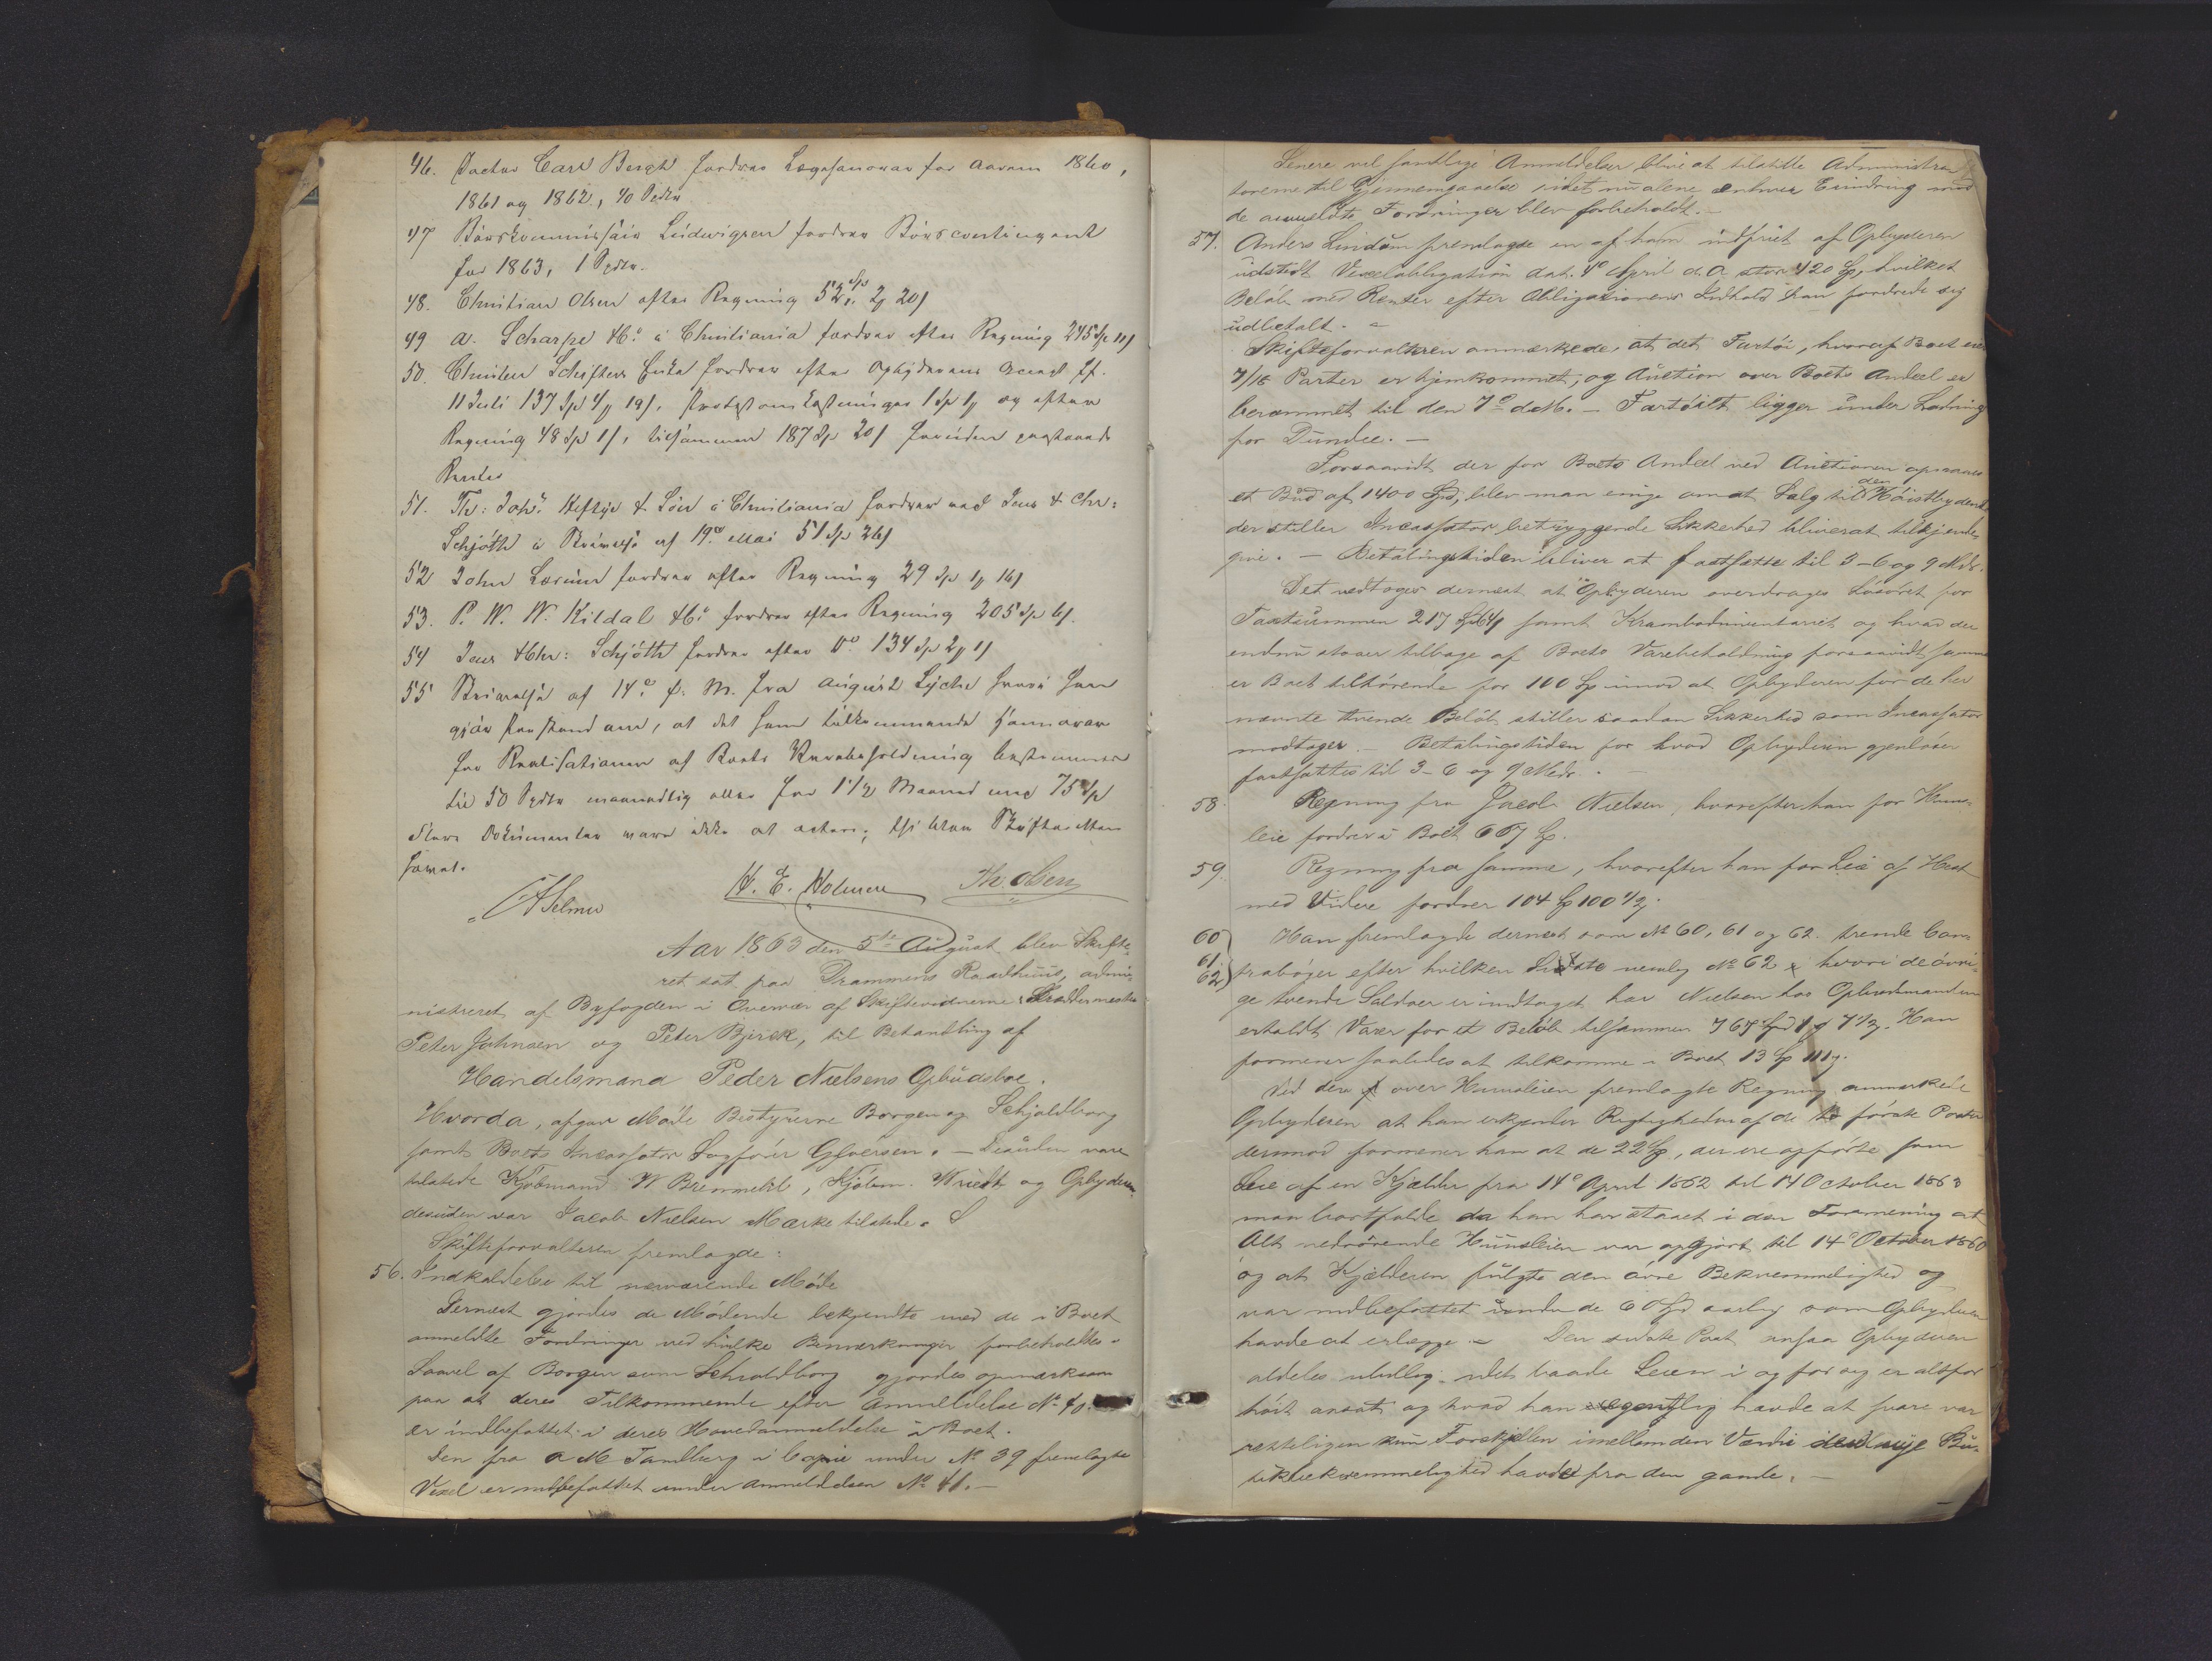 46. Doctor Carl Bergh fordrer Lægehonorar for Aarene 1860,
1861 og 1862, 40 Spdlr
47 Börskommissair Ludwigsen fordrer Börscontingent
for 1863, 1 Spdlr.
48. Christian Olsen efter Regning 52 Sp. 2 # 20 /
49 A. Scharpe & Co. i Christiania fordrer efter Regning 245 Sp 11 /
50. Christen Schifters Enke fordrer efter Opbyderens Accept ff.
11 Juli 137 Sp 4 # 19 /, Protestomkostninger 1 Sp 1 # og efter
Regning 48 Sp 1 /, tilsammen 187 Sp 20 / foruden paastaaede
Renter
51. Th: Joh. Heftye & Sön i Christiania fordrer ved Jens & Chr:
Schjöth i Skrivelse af 19de Mai 51 Sp 26 /
52 John Lorum fordrer efter Regning 29 Sp 1 # 16 /
53. P. W. W. Kildal & Co. fordrer efter Regning 205 Sp 6 /
54 Jens & Chr: Schjöth fordrer efter Do 134 Sp 2 # 1 /
55 Skrivelse af 14de d. M. fra August Lyche hvori han
gjör Paastand om, at det ham tilkommende Honorar
for Realisationen af Boets Varebeholdning bestemmes
til 50 Spdlr maanedlig eller for 1 1/2 Maaned med 75 Sp
Flere Dokumenter vare ikke at ; thi blev Skiftesamlingen
hævet.
Selmer H. E. Holmsen Th. Olsen
Aar 1863 den 5te August blev Skifte-
ret sat paa Drammens Raadhuus, admi-
nistreret af Byfogden i Overvær af Skiftevidnerne Skræddermester
Peter Johnsen og Peter Bjerck, til Behandling af
Handelsmand Peder Nielsens Opbudsboe.
Hvorda, afgav Möde Bestyrerne Borgen og Schjoldborg
samt Boets Incassator Sagförer Gløersen. - Desuden vare
tilstede Kjöbmand W Bremmehl, Kjöbm. Wriedt og Opbyderen
desuden var Jacob Nielsen Mærke tilstede.
Skifteforvalteren fremlagde:
56. Indkaldelse til nærværende Möde
Dernæst gjordes de Mödende bekjendte med de i Boet
anmeldte Fordringer ved hvilke Bemærkninger forbeholdtes.
Saavel af Borgen som Schioldborg gjordes opmærksom
paa at deres Tilkommende efter Anmeldelse No 40
er indbefattet i deres Hovedanmeldelse i Boet.
Den fra A M Tandberg i Copie under No 39 fremlagte
Vexel er indbefattet under Anmeldelsen No 41. -
Senere vil samtlige Anmeldelser blive at tilstille Administra-
torerne til Gjennemgaaelse idet nu alene enhver Erindring mod
de anmeldte Fordringer blev forbeholdt. -
57. Anders Lindum fremlagde en af ham indfriet af Opbyderen
udstedt Vexelobligation dat. 4de April d. A. stor 420 Sp, hvilket
Belöb med Renter efter Obligationens Indhold han fordrede sig
udbetalt. -
Skifteforvalteren anmærkede, at det Fartöi, hvoraf Boet eier
7/16 Parter er hjemkommet, og Auction over Boets Andeel er
berammet til den 7de ds. - Fartöiet ligger under Ladning
for Dundee. -
Forsaavidt der for Boets Andeel ved Auctionen opnaaes
et Bud af 1400 Spd, blev man enige om at Salg til den Höistbydende
der stiller Incassator betryggende Sikkerhed bliver at tilkjende-
give. - Betalingstiden bliver at fastsætte til 3 - 6 og 9 Mdr.
Det vedtoges dernæst at Opbyderen overdrages Lösöret for
Taxtsummen 217 Spd 64 / samt Krambodinventariet og hvad der
endnu staaer tilbage af Boets Varebeholdning forsaavidt samme
er Boet tilhörende for 100 Sp imod at Opbyderen for de her
nævnte tvende Belöb stiller saadan Sikkerhed som Incassator
modtager. - Betalingstiden for hvad Opbyderen gjenlöser
fastsattes til 3 - 6 og 9 Mdr. -
58. Regning fra Jacob Nielsen, hvorefter han for Huus-
leie fordrer i Boet 667 Sp.
59. Regning fra samme, hvorefter han for Leie af Hest
med Videre fordrer 104 Sp 100 1/2 /.
60) Han fremlagde dernæst som No 60, 61 og 62 trende Con-
61.
62) trabøger efter hvilken Sidste nemlig No 62 hvori de övri-
ge tvende Saldoer er indtaget har Nielsen hos Opbudsmanden
erholdt Varer for et Belöb tilsammen 767 Spd 1 # 7 1/2 /. Han
formener saaledes at tilkomme i Boet 13 Sp 111 /.
Ved den over Huusleien fremlagte Regning anmærkede
Opbyderen at han erkjender Rigtigheden af de to förste Poster
derimod formener han at de 22 Sp, der ere opförte som
Leie af en Kjælder fra 14de April 1862 til 14 October 1863
maa bortfalde da han har staaet i den Formening at
Alt vedrörende Huusleien var opgjort til 14de October 1860
og at Kjælderen fulgte den övre Bekvemmelighed og
var indbefattet under de 60 Spd aarlig som Opbyderen
havde at erlægge. - Den sidste Post ansaa Opbyderen
aldeles ubillig, idet baade Leien i og for sig er altfor
höit ansat og hvad han egentlig havde at svare var
retteligen kun Forskjellen imellem den Værdi den nye Bu-
tikbekvemmelighed havde fra den gamle. -